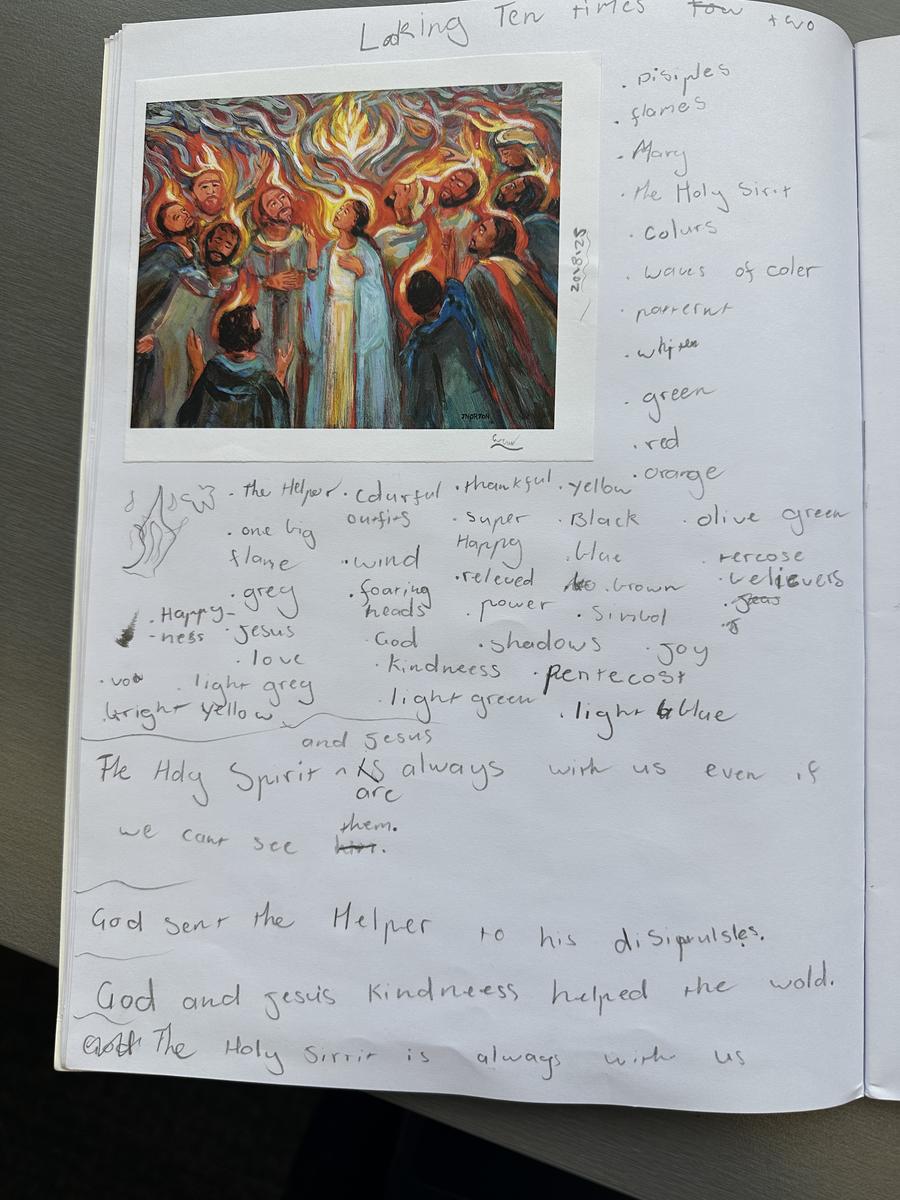 Loking Ten times two
. Disiples
. flames
. Mary
. the Holy Sirit
. colurs
. waves of coler
. patternt
. green
. red
. orange
20.8.25
JNORTON
. the Helper
. one big
flame
. grey
. Happy-
-ness
. Jesus
. love
. light grey
. bright yellow
. colurful
outfits
. wind
. foaring
heads
. God
. Kindneess
. light green
. thankful
. super
Happy
. releved
. power
. shadows
. pentecost
. yellow
. Black
. blue
. brown
. Simbol
. joy
. light blue
. olive green
. tercose
. believers
and jesus
The Holy Spirit ^ is always with us even if
are
them.
we cant see him.
God sent the Helper to his disiprulsles.
God and jesuis Kindneess helped the wold.
The Holy Sirrit is always with us